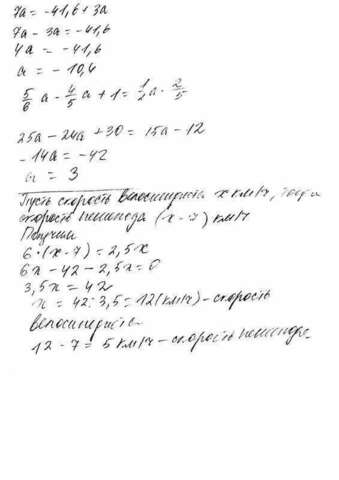 7a = -41,6 + 3a
7a - 3a = -41,6
4a = -41,6
a = -10,4
5/6 a - 4/5 a + 1 = 1/2 a - 2/5
25a - 24a + 30 = 15a - 12
-14a = -42
a = 3
Пусть скорость велосипедиста x км/ч, тогда
скорость пешехода (x - 7) км/ч
Получим
6 · (x - 7) = 2,5x
6x - 42 - 2,5x = 0
3,5x = 42
x = 42 : 3,5 = 12 (км/ч) - скорость
велосипедиста
12 - 7 = 5 км/ч - скорость пешехода.